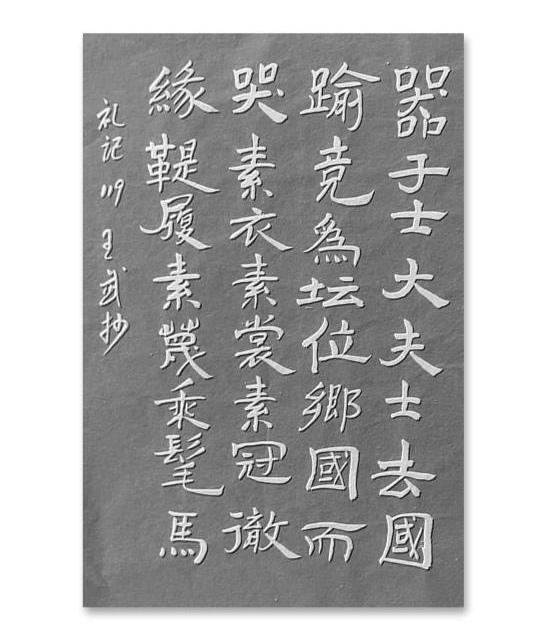 器于士大夫士去國
踰竟為坛位鄉國而
哭素衣素裳素冠徹
緣鞮履素薎乘髦馬
礼记119王武抄